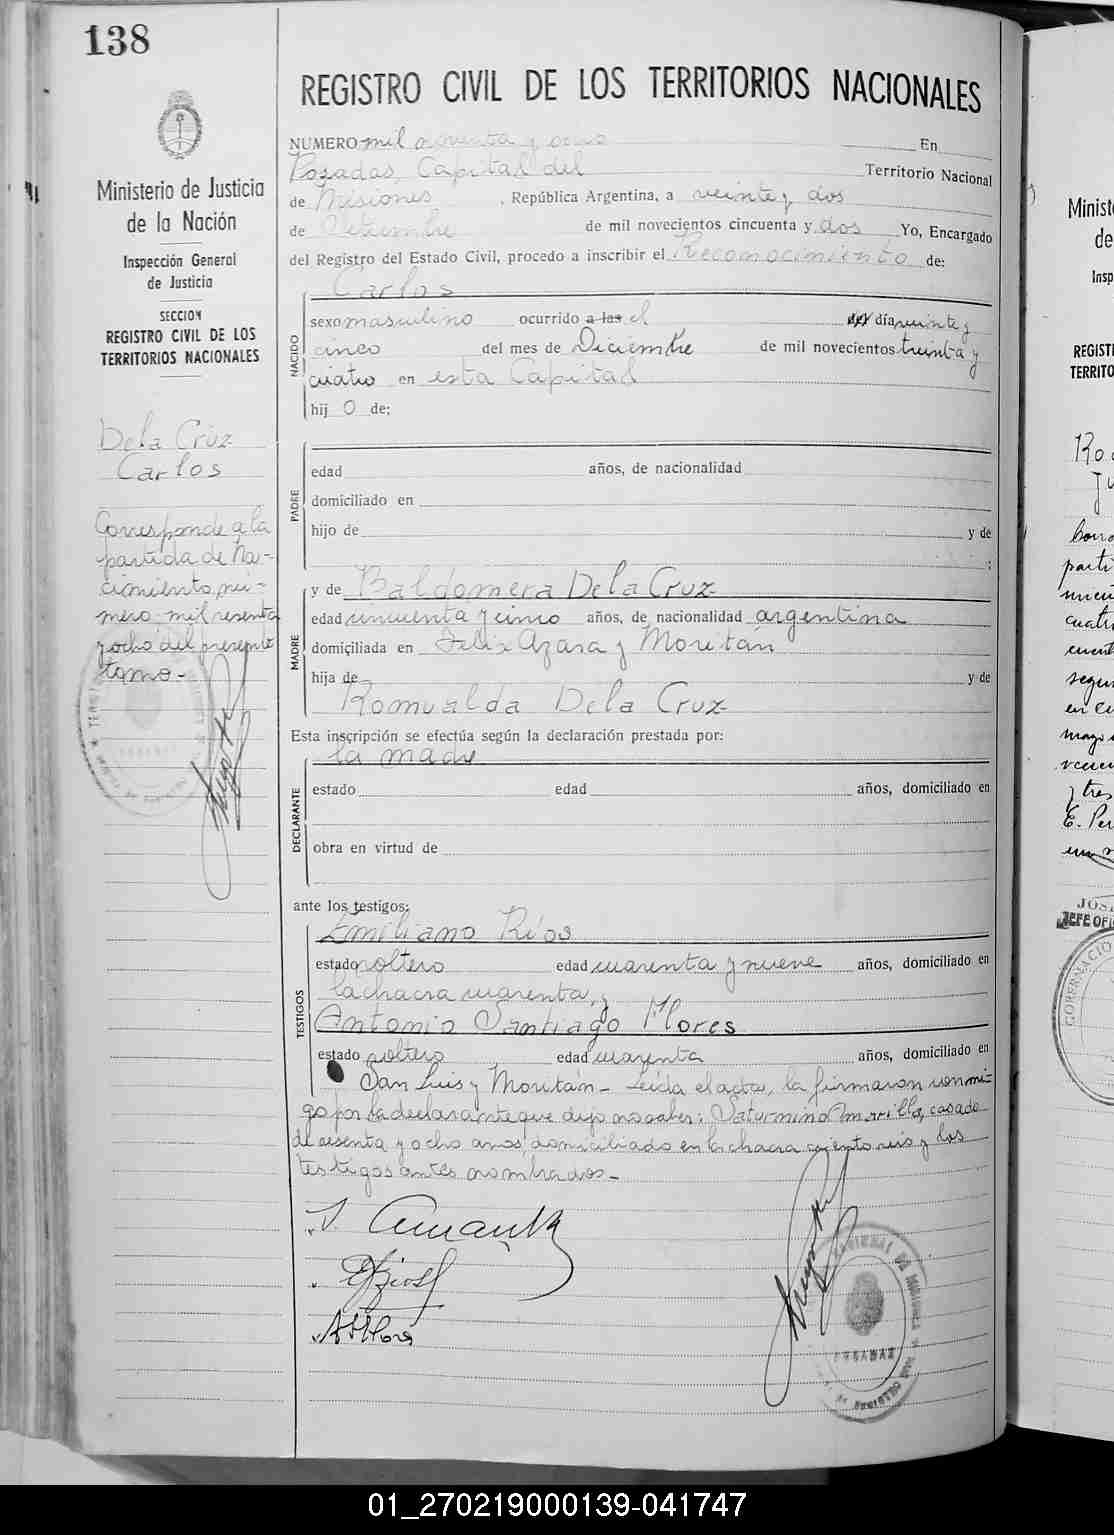 138
REGISTRO CIVIL DE LOS TERRITORIOS NACIONALES
Ministerio de Justicia
de la Nación
Inspección General
de Justicia
SECCION
REGISTRO CIVIL DE LOS
TERRITORIOS NACIONALES
De la Cruz
Carlos
Corresponde a la
partida de Na-
cimiento nú-
mero mil sesenta
y ocho del presente
tomo.-
NUMERO mil noventa y ocho En
Posadas, Capital del Territorio Nacional
de Misiones, República Argentina, a veinte y dos
de Setiembre de mil novecientos cincuenta y dos Yo, Encargado
del Registro del Estado Civil, procedo a inscribir el Reconocimiento de:
NACIDO
Carlos
sexo masculino ocurrido a las el día veinte y
cinco del mes de Diciembre de mil novecientos treinta y
cuatro en esta Capital
hij o de:
PADRE
edad años, de nacionalidad
domiciliado en
hijo de y de
:
MADRE
y de Baldomera De la Cruz
edad cincuenta y cinco años, de nacionalidad argentina
domiciliada en Felix Azara y Moritán
hija de y de
Romualda De la Cruz
Esta inscripción se efectúa según la declaración prestada por:
la madre
DECLARANTE
estado edad años, domiciliado en
obra en virtud de
ante los testigos:
TESTIGOS
Emiliano Ríos
estado soltero edad cuarenta y nueve años, domiciliado en
la chacra cuarenta, y
Antonio Santiago Flores
estado soltero edad cuarenta años, domiciliado en
San Luis y Moritán - Leída el acta, la firmaron conmi-
go por la declarante que dijo no saber: Saturnino Amarilla, casado
de sesenta y ocho años, domiciliado en la chacra ciento seis y los
testigos antes nombrados.-
POSADAS
Minist
de
Insp
REGISTR
TERRITO
JOS
JEFE OFI
GOBERNACIO
01_270219000139-041747